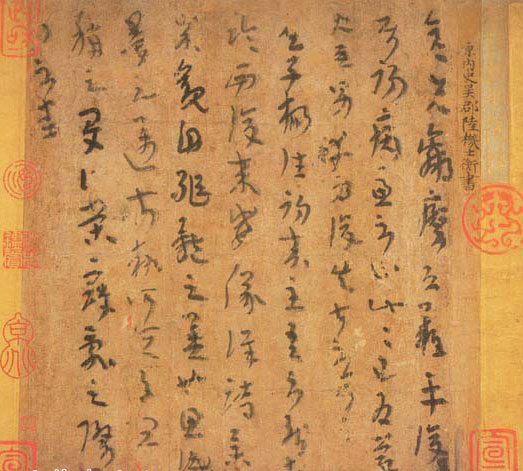 晉內史吳郡陸機士衡書
彦先羸瘵恐難平復
往屬初病慮不止此此已為慶
承使唯男幸為復失前憂耳
吳子楊往初來主吾不能
臨西復來威儀詳跱舉
成觀自軀體之美也思識
量之邁前執所恒有宜
稱之夏伯榮寇亂之際
聞問不悉